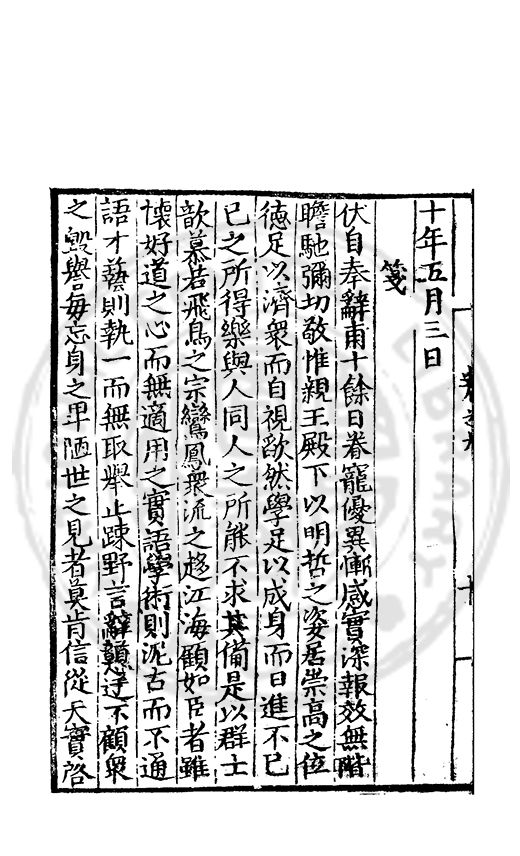 十年五月三日
箋
伏自奉辭甫十餘日眷寵優異慚感實深報效無階
瞻馳彌切敬惟親王殿下以明哲之姿居崇高之位
德足以濟衆而自視欿然學足以成身而日進不已
已之所得樂與人同人之所能不求其備是以群士
歆慕若飛鳥之宗鸞鳳衆流之趨江海顧如臣者雖
懷好道之心而無適用之實語學術則泥古而不通
語才藝則執一而無取舉止踈野言辭戇迂不顧衆
之毀譽每忘身之卑陋世之見者莫肯信從天實啓